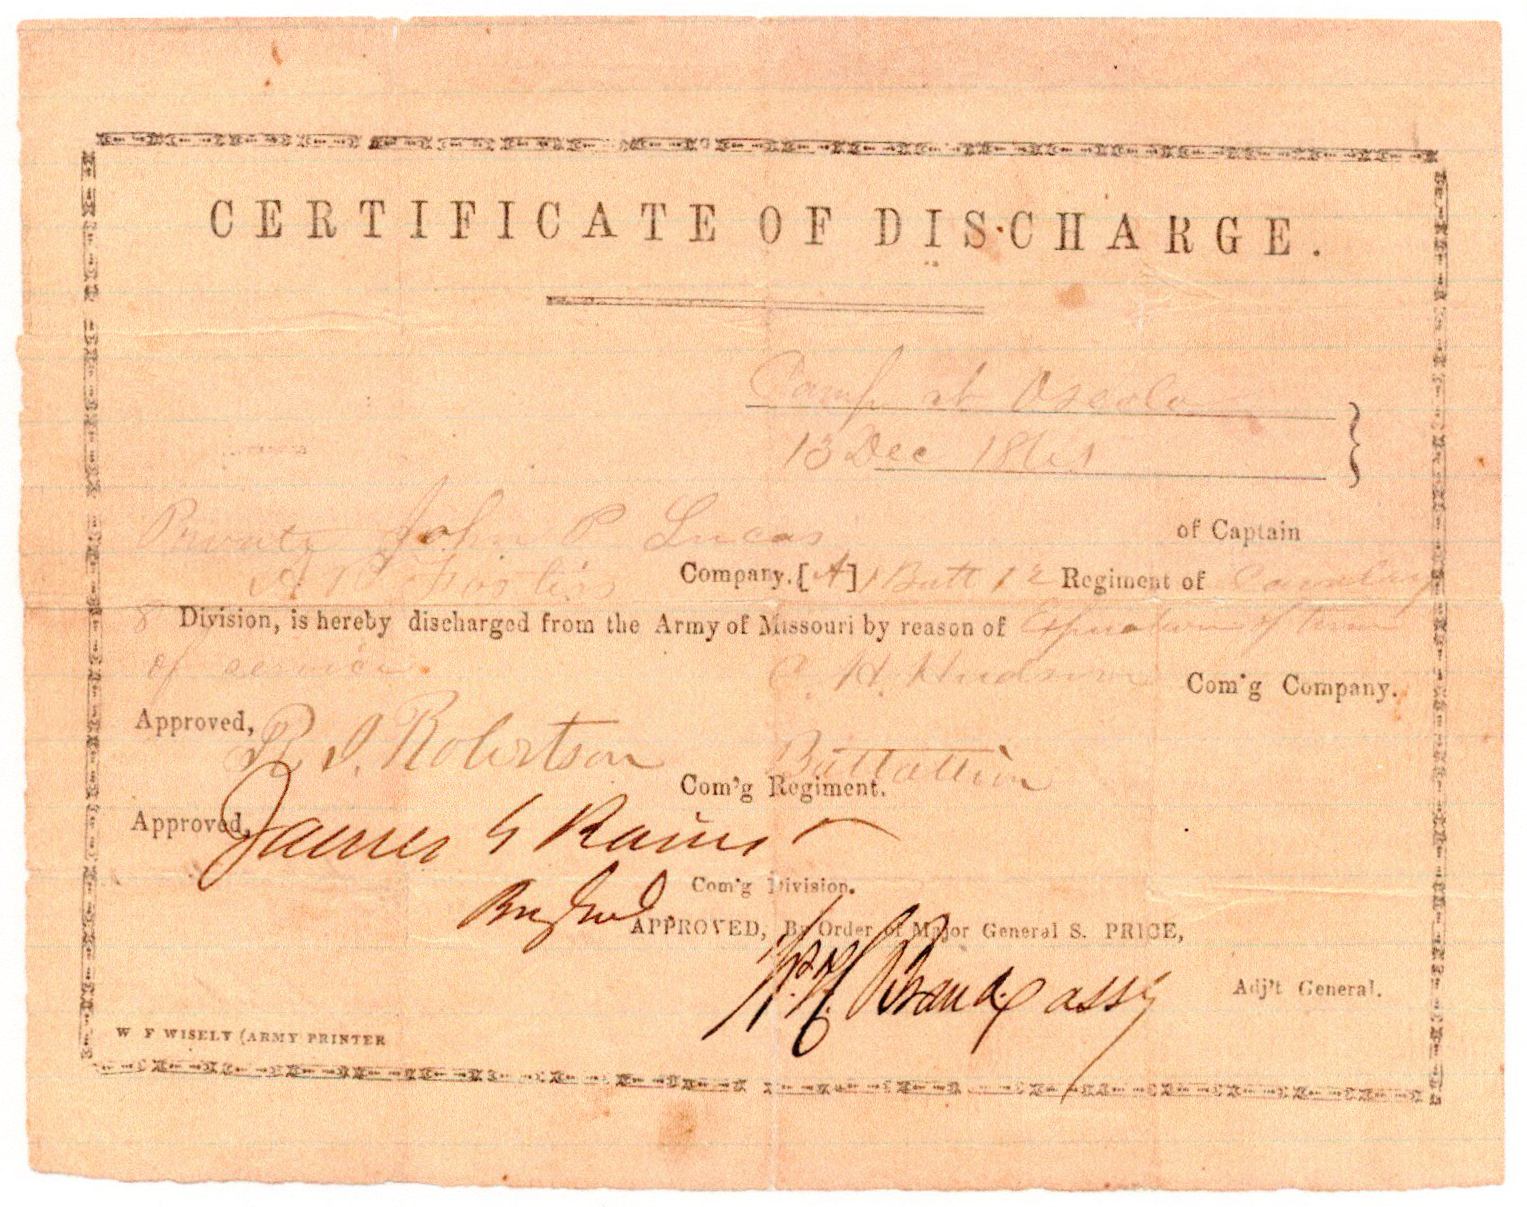 CERTIFICATE OF DISCHARGE.
Camp at Osceola
13 Dec 1861
Private John P. Lucas of Captain
Company. [A] 1 Batt 12 Regiment of Cavalry
8 Division, is hereby discharged from the Army of Missouri by reason of Expiration of term
of service. C. H. Hudson Com'g Company.
Approved, R. I. Robertson Battallion
Com'g Regiment.
Approved, James S Rains
Brig Genl Com'g Division.
APPROVED, By Order of Major General S. PRICE,
W. H. Brand. assy Adj't General.
W F WISELY (ARMY PRINTER